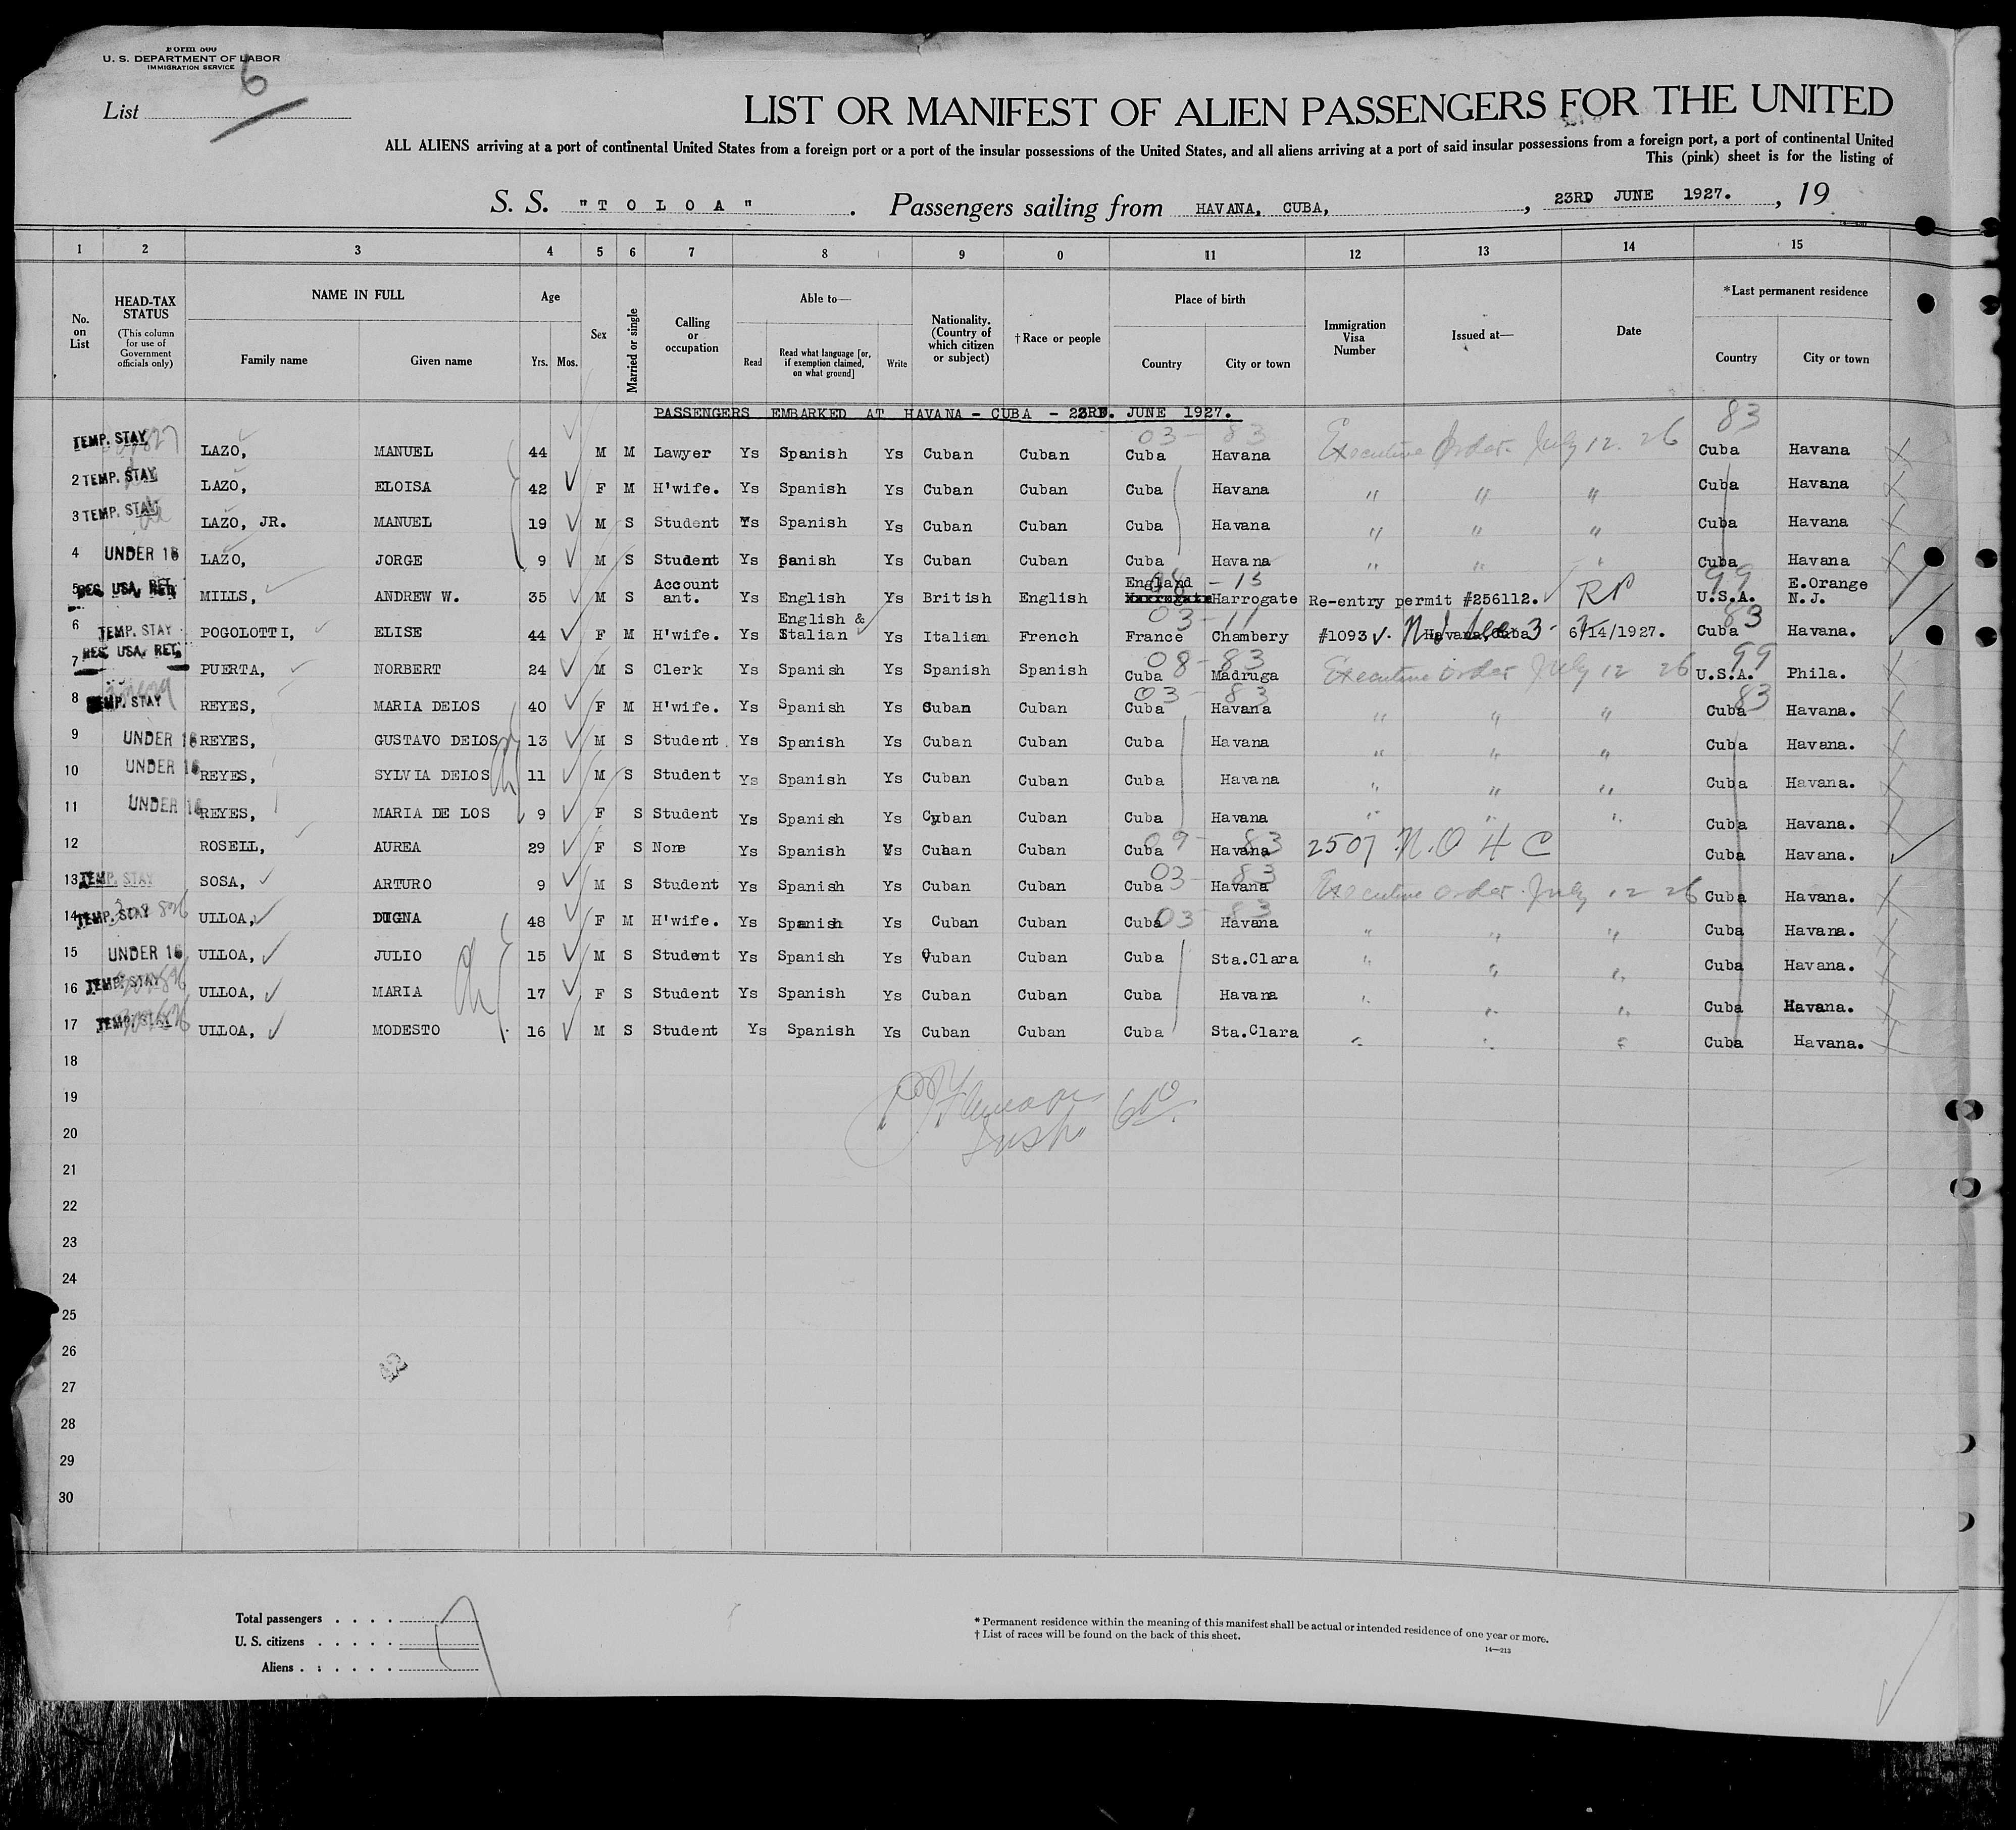 Form 500
U. S. DEPARTMENT OF LABOR
IMMIGRATION SERVICE
6
List
LIST OR MANIFEST OF ALIEN PASSENGERS FOR THE UNITED
ALL ALIENS arriving at a port of continental United States from a foreign port or a port of the insular possessions of the United States, and all aliens arriving at a port of said insular possessions from a foreign port, a port of continental United
This (pink) sheet is for the listing of
S. S. "TOLOA" . Passengers sailing from HAVANA, CUBA, , 23RD JUNE 1927. , 19
1 2 3 4 5 6 7 8 9 0 11 12 13 14 15
No. on List HEAD-TAX STATUS (This column for use of Government officials only) NAME IN FULL Family name Given name Age Yrs. Mos. Sex Married or single Calling or occupation Able to— Read Read what language [or, if exemption claimed, on what ground] Write Nationality. (Country of which citizen or subject) †Race or people Place of birth Country City or town Immigration Visa Number Issued at— Date *Last permanent residence Country City or town
PASSENGERS EMBARKED AT HAVANA - CUBA - 23RD. JUNE 1927.
03 - 83 83
TEMP. STAY LAZO, MANUEL 44 M M Lawyer Ys Spanish Ys Cuban Cuban Cuba Havana Executive Order July 12. 26 Cuba Havana
2 TEMP. STAY LAZO, ELOISA 42 F M H'wife. Ys Spanish Ys Cuban Cuban Cuba Havana " " " Cuba Havana
3 TEMP. STAY LAZO, JR. MANUEL 19 M S Student Ys Spanish Ys Cuban Cuban Cuba Havana " " " Cuba Havana
4 UNDER 16 LAZO, JORGE 9 M S Student Ys Spanish Ys Cuban Cuban Cuba Havana " " " Cuba Havana
5 RES. USA. RET. MILLS, ANDREW W. 35 M S Accountant. Ys English Ys British English England Harrogate Re-entry permit #256112. RP U.S.A. E.Orange N.J.
6 TEMP. STAY POGOLOTTI, ELISE 44 F M H'wife. Ys English & Italian Ys Italian French France Chambery #1093 Havana, Cuba 6/14/1927. Cuba Havana.
7 RES. USA. RET. PUERTA, NORBERT 24 M S Clerk Ys Spanish Ys Spanish Spanish Cuba Madruga Executive order July 12 26 U.S.A. Phila.
8 TEMP. STAY REYES, MARIA DELOS 40 F M H'wife. Ys Spanish Ys Cuban Cuban Cuba Havana " " " Cuba Havana.
9 UNDER 16 REYES, GUSTAVO DELOS 13 M S Student. Ys Spanish Ys Cuban Cuban Cuba Havana " " " Cuba Havana.
10 UNDER 16 REYES, SYLVIA DELOS 11 M S Student Ys Spanish Ys Cuban Cuban Cuba Havana " " " Cuba Havana.
11 UNDER 16 REYES, MARIA DE LOS 9 F S Student Ys Spanish Ys Cuban Cuban Cuba Havana " " " Cuba Havana.
12 ROSELL, AUREA 29 F S None Ys Spanish Ys Cuban Cuban Cuba Havana 2507 N.O 4 C Cuba Havana.
13 TEMP. STAY SOSA, ARTURO 9 M S Student Ys Spanish Ys Cuban Cuban Cuba Havana Executive order July 12 26 Cuba Havana.
14 TEMP. STAY ULLOA, DIGNA 48 F M H'wife. Ys Spanish Ys Cuban Cuban Cuba Havana " " " Cuba Havana.
15 UNDER 16 ULLOA, JULIO 15 M S Student Ys Spanish Ys Cuban Cuban Cuba Sta.Clara " " " Cuba Havana.
16 TEMP. STAY ULLOA, MARIA 17 F S Student Ys Spanish Ys Cuban Cuban Cuba Havana " " " Cuba Havana.
17 TEMP. STAY ULLOA, MODESTO 16 M S Student Ys Spanish Ys Cuban Cuban Cuba Sta.Clara " " " Cuba Havana.
18
19
20
21
22
23
24
25
26
27
28
29
30
Total passengers . . . .
U. S. citizens . . . . .
Aliens . . . . . .
* Permanent residence within the meaning of this manifest shall be actual or intended residence of one year or more.
† List of races will be found on the back of this sheet.
14—213